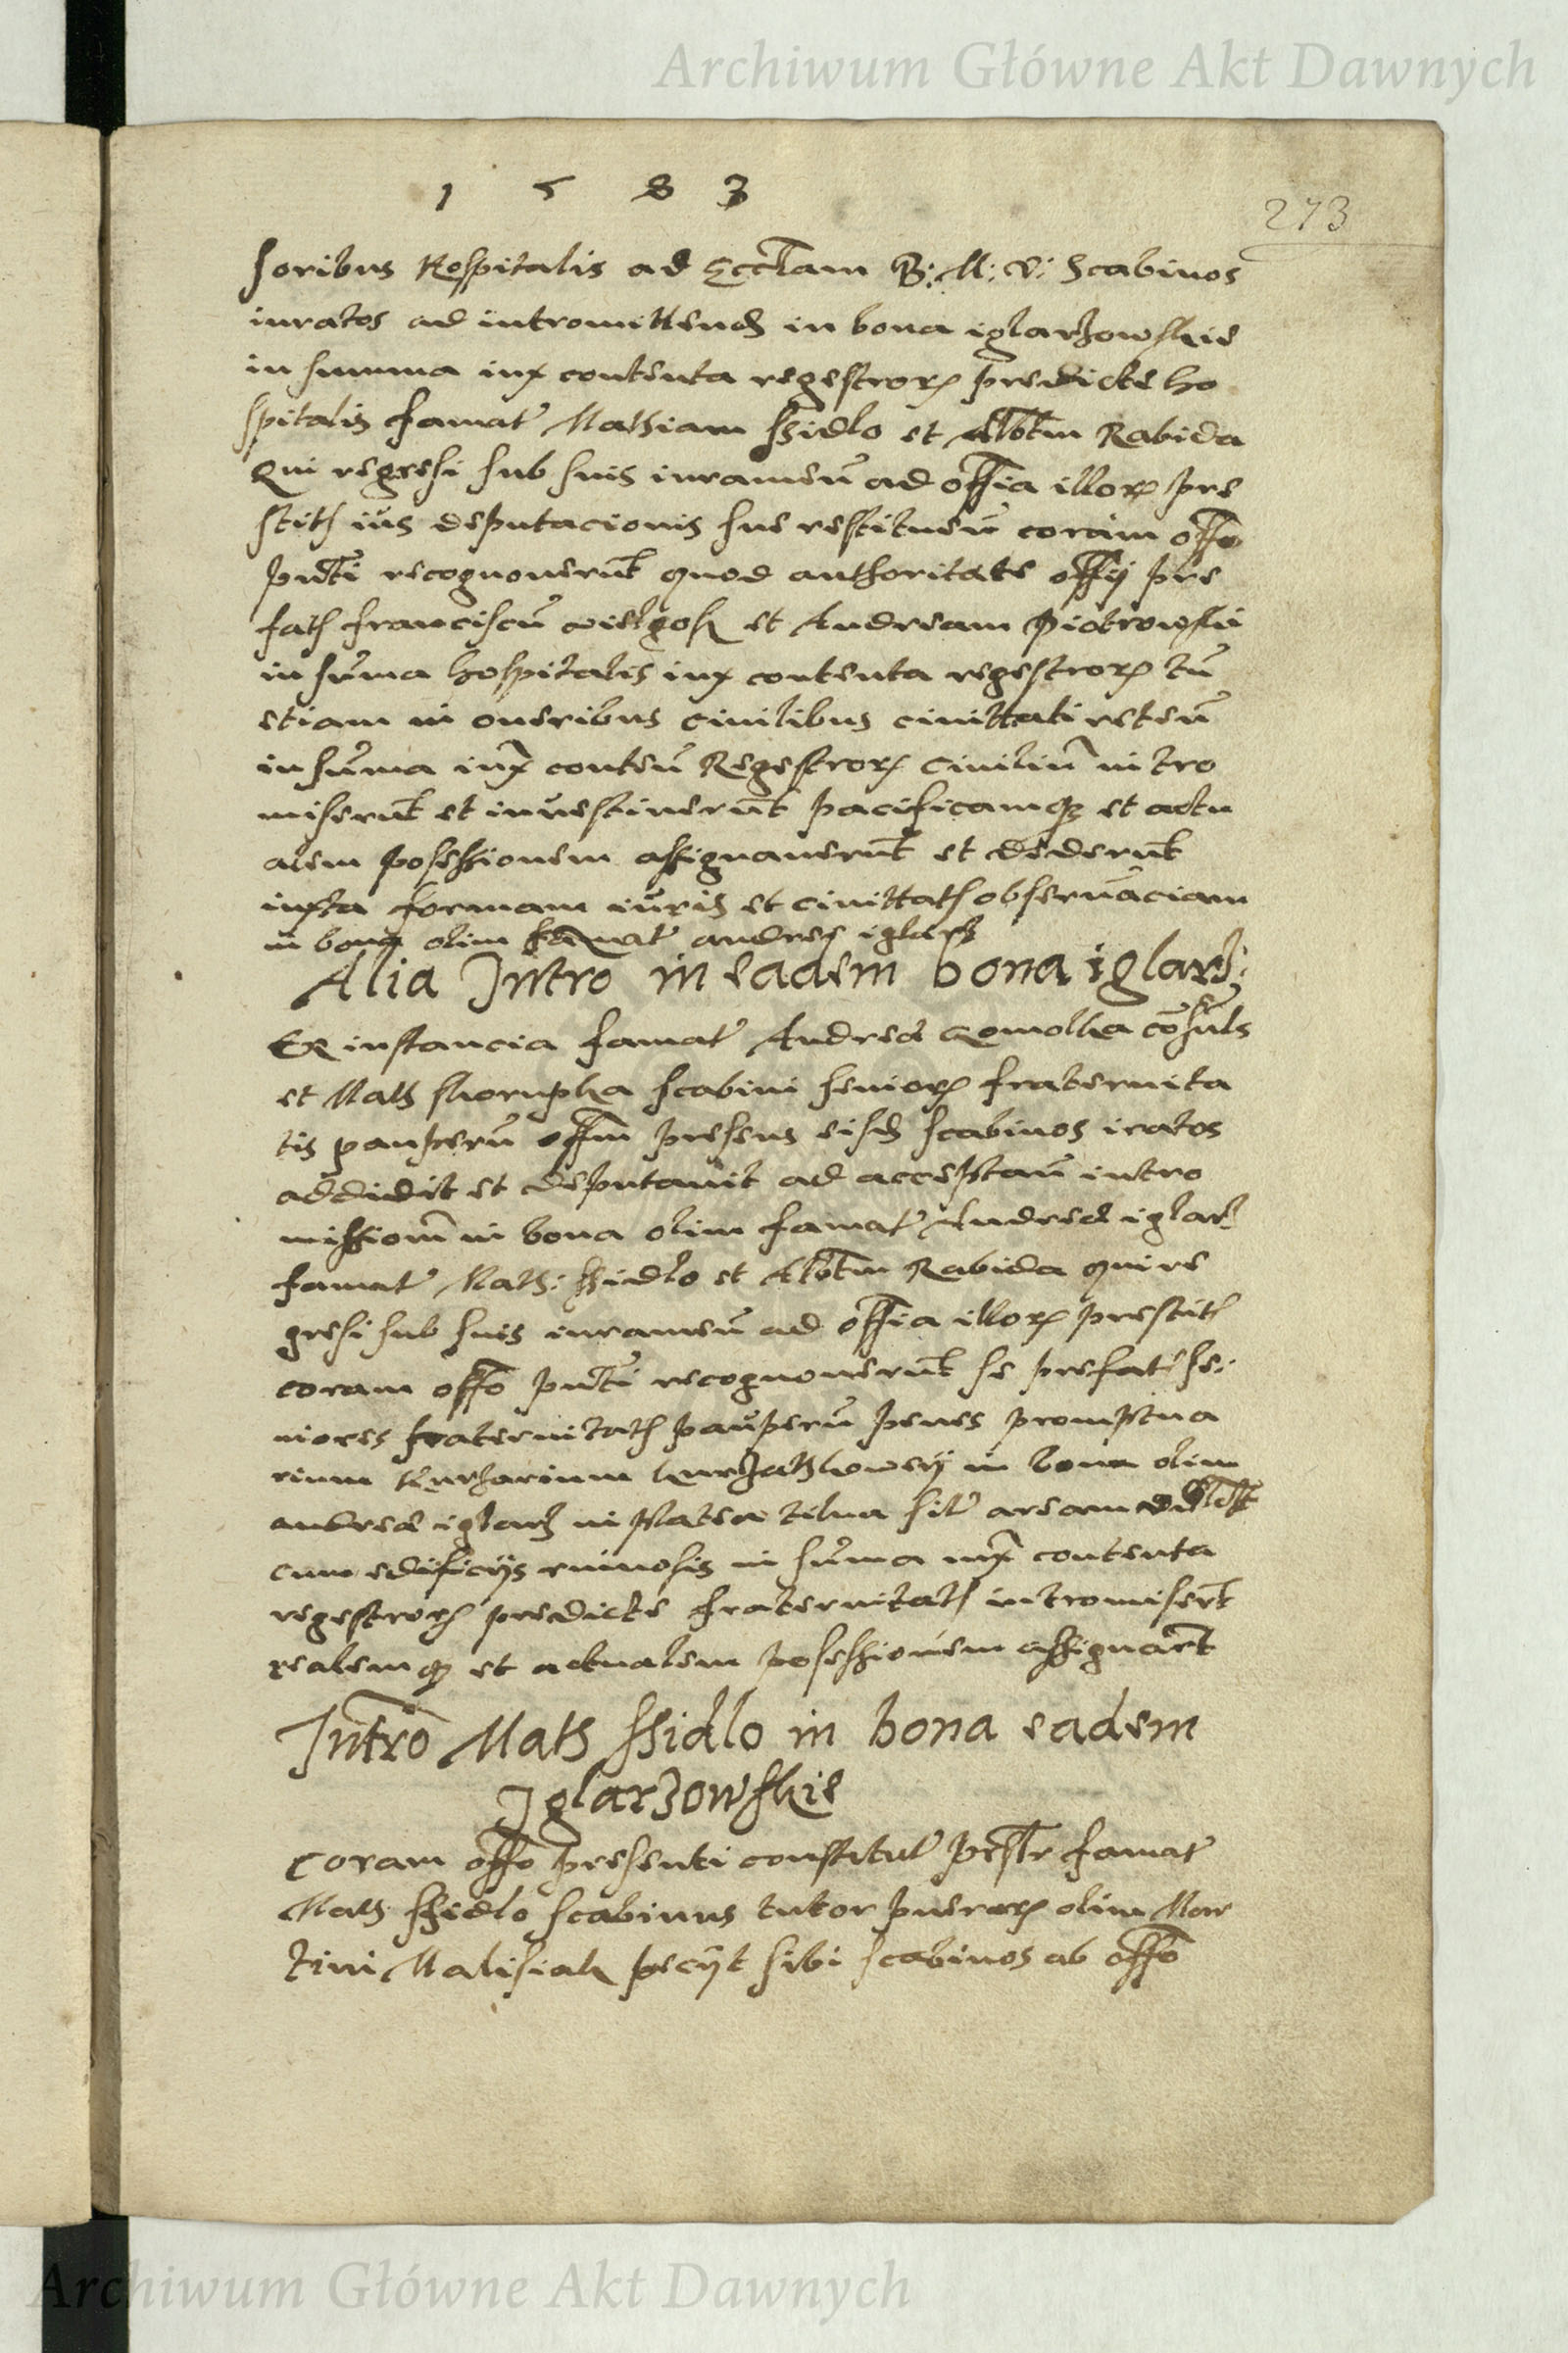 Archiwum Główne Akt Dawnych
1 5 8 3
273
soribus Hospitalis ad Eccłam B: M: V: Scabinos
iuratos ad intromittend in bona iglarzowskie
in summa iux contenta regestror predicte ho
spitalis famat Mathiam Ssidlo et Albtm Rabida
Qui regresi sub suis iuramen ad offia illor pre
stits ius deputacionis sue restituen coram offo
pnti recognouerut quod authoritate offy pre
fats franciscu wielgosh et Andream Piotrowski
in suma hospitalis iux contenta regestror tu
etiam in oneribus ciuilibus ciuittati reten
in suma iux conten Regestror Ciuiliu intro
miserut et inuestiuerut pacificamq et actu
alem posessionem assignauerut et dederut
iuxta formam iuris et ciuittats obseruaciam
in bona olim famat andree iglarz
Alia Intro in eadem bona iglarz:
Ex instancia famat Andreæ Gomolka cosuls
et Math skorupka scabini senior fraternita
tis pauperu offm presens eisd scabinos iratos
addidit et deputauit ad acceptan intro
missiom in bona olim famat Andreæ iglarz
famat Math: Ssidlo et Albtm Rabida qui re
gresi sub suis iuramen ad offia illor prestits
coram offo pnti recognouerut se prefat se:
niores fraternitats pauperu penes promptua
rium
andreæ iglarz in platea zilna sit aream
cum edificijs ruinosis in suma iux contenta
regestror predicte fraternitats intromisert
realemq et actualem posessionem assignart
Intro Math Ssidlo in bona eadem
Iglarzowskie
Coram offo presenti constitut prstr famat
Math Ssidlo scabinus tutor pueror olim Mar
tini Malisiak pecijt sibi scabinos ab offo
Archiwum Główne Akt Dawnych